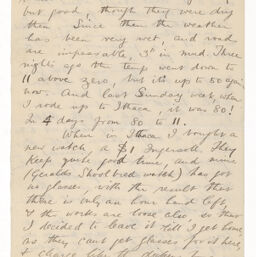 but good, though they were dry
then. Since then the weather
has been very wet and roads
are impassable, 3' in mud. Three
nights ago the temp went down to
11 above zero, but it's up to 50 again
now. And last Sunday week, when
I rode up to Ithaca, it was 80!
In 4 days from 80 to 11.
When in Ithaca I bought a
new watch, a $1 Ingersoll. They
keep quite good time, and mine
(Geralds Shoolbred watch) has got
no glasses, with the result that
there is only an hour hand left,
& the works are loose also, so that
I decided to leave it till I get home,
as they can't get glasses for it here,
& charge like the